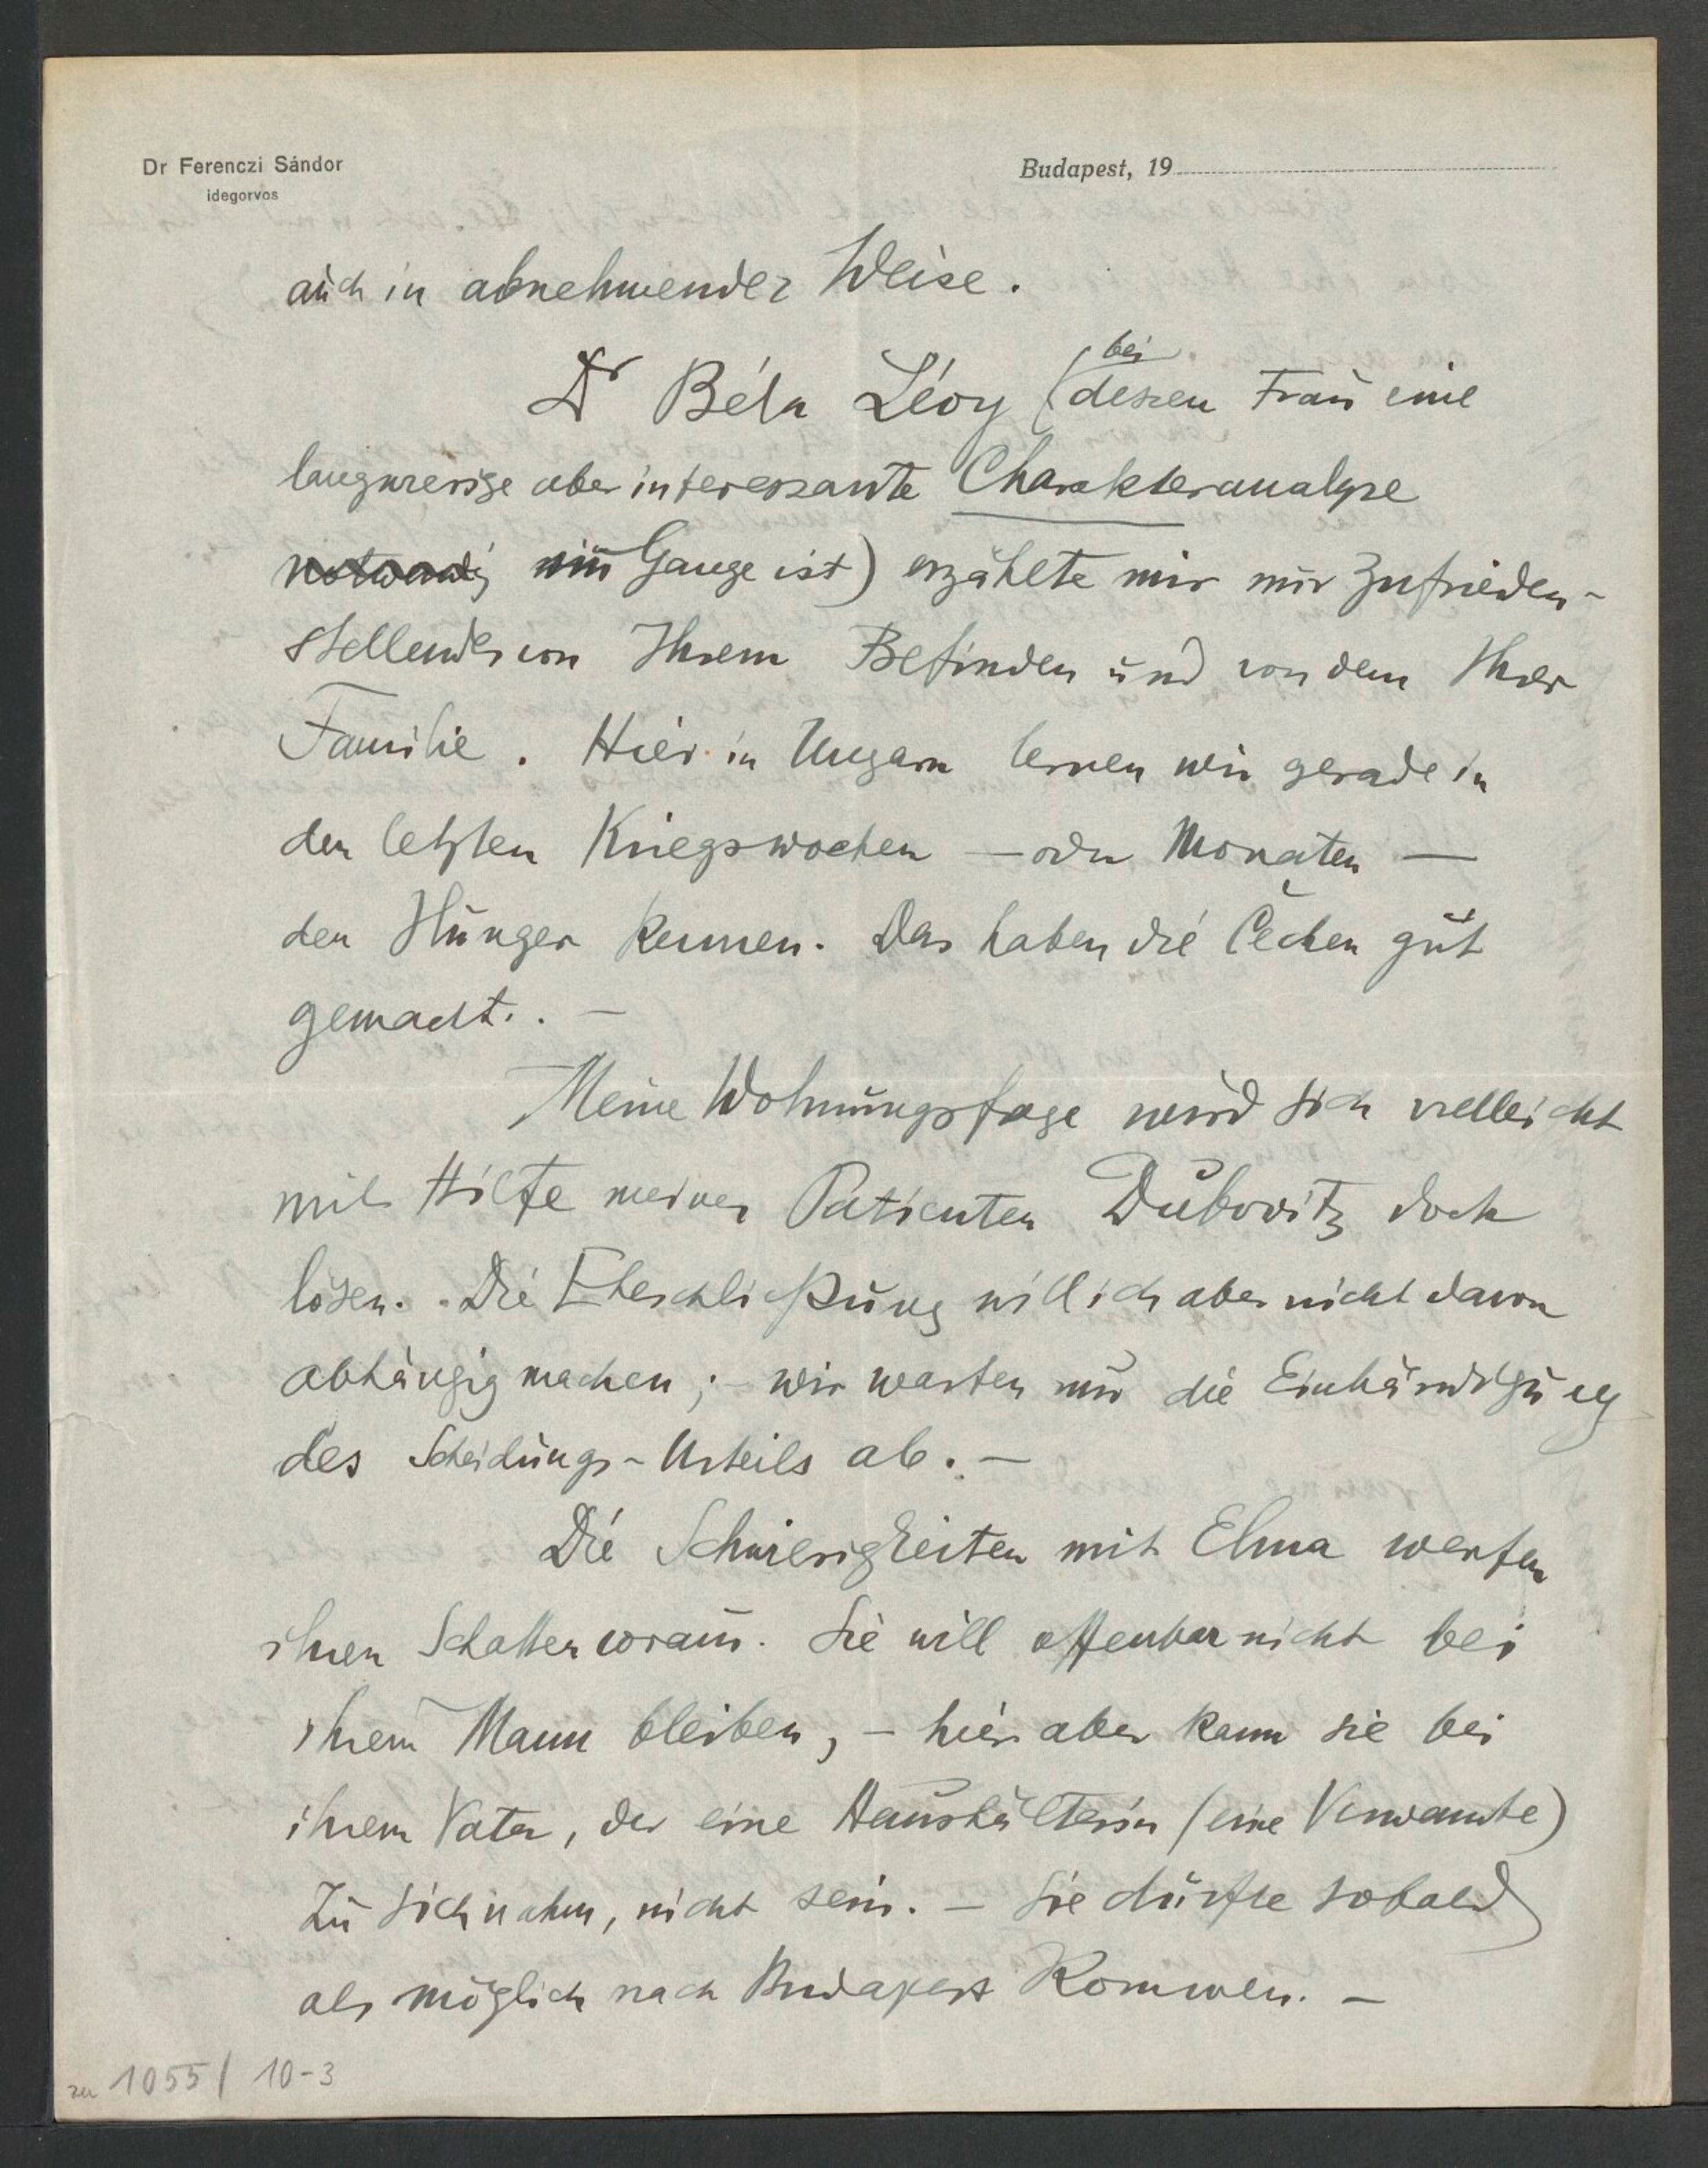 Dr Ferenczi Sándor
idegorvos
Budapest, 19
auch in abnehmender Weise.
bei
Dr Béla Lévy (dessen Frau eine
langwierige aber interessante Charakteranalyse
notwendig im Gange ist) erzählte mir nur Zufrieden-
stellendes von Ihrem Befinden und von dem Ihrer
Familie. Hier in Ungarn lernen wir gerade in
den letzten Kriegswochen — oder Monaten —
den Hunger kennen. Das haben die Čechen gut
gemacht. . —
Meine Wohnungsfrage wird sich vielleicht
mit Hilfe meines Patienten Dubovitz doch
lösen. Die Eheschließung will ich aber nicht davon
abhängig machen; – wir warten nur die Einhändigung
des Scheidungs-Urteils ab. —
Die Schwierigkeiten mit Elma werfen
ihren Schatten voraus. Sie will offenbar nicht bei
ihrem Mann bleiben, – hier aber kann sie bei
ihrem Vater, der eine Haushälterin (eine Verwandte)
zu sich nahm, nicht sein. – Sie dürfte sobald
als möglich nach Budapest kommen. —
zu 1055/ 10-3